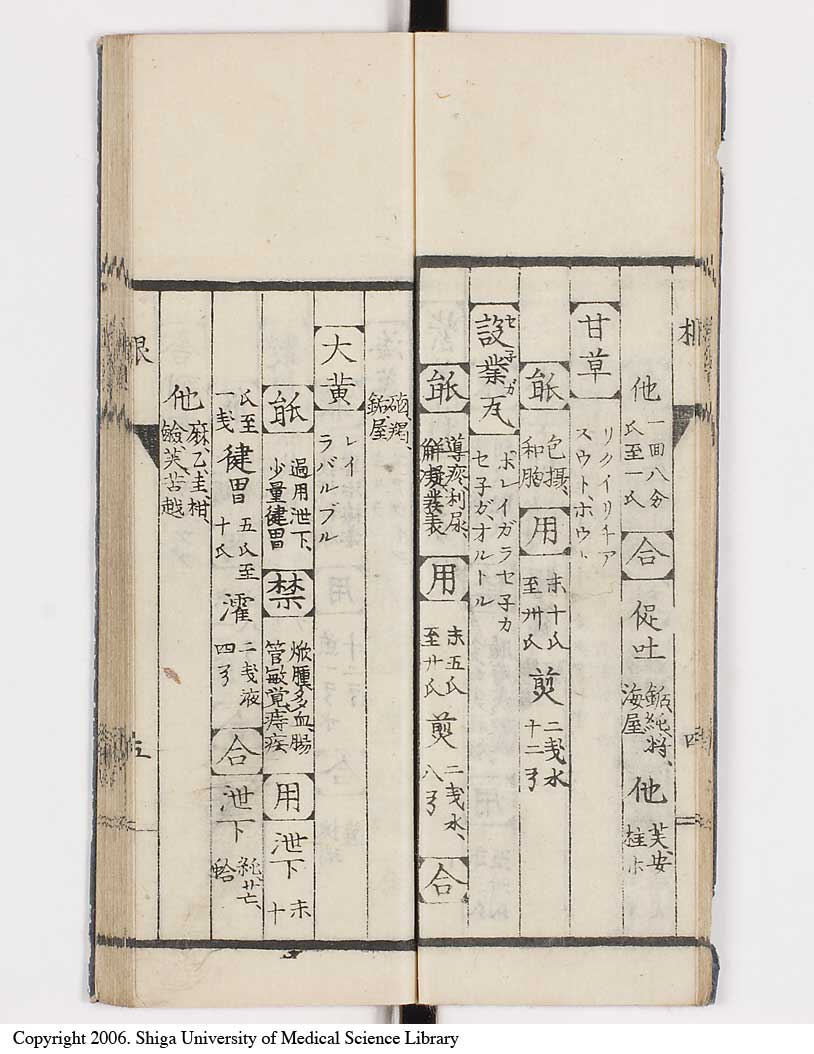 四
他 一回八分
氏至一氏 合 促吐 純將、
海屋 他 芙、安
甘草 リクイリチア
スウト、ホウト
能 包攝、
和胸 用 末十氏
至卅氏 煎 二戔水
十二
設業瓦 セ子ガ
ポレイガラセ子カ
セ子ガ、オルトル
能 導痰利尿、
解凝表 用 末五氏
至廿氏 煎 二戔水、
八 合
屋
大黄 レイ
ラバルブル
能 過用泄下、
少量健胃 禁 焮腫多血、腸
管敏覚、痔疾 用 泄下 末
十
氏至
一戔 健胃 五氏至
十氏 濯 二戔液
四 合 泄下 純、芒、
蛤
他 麻、乙、圭柑、
鹼、芙、苦越
五
Copyright 2006. Shiga University of Medical Science Library